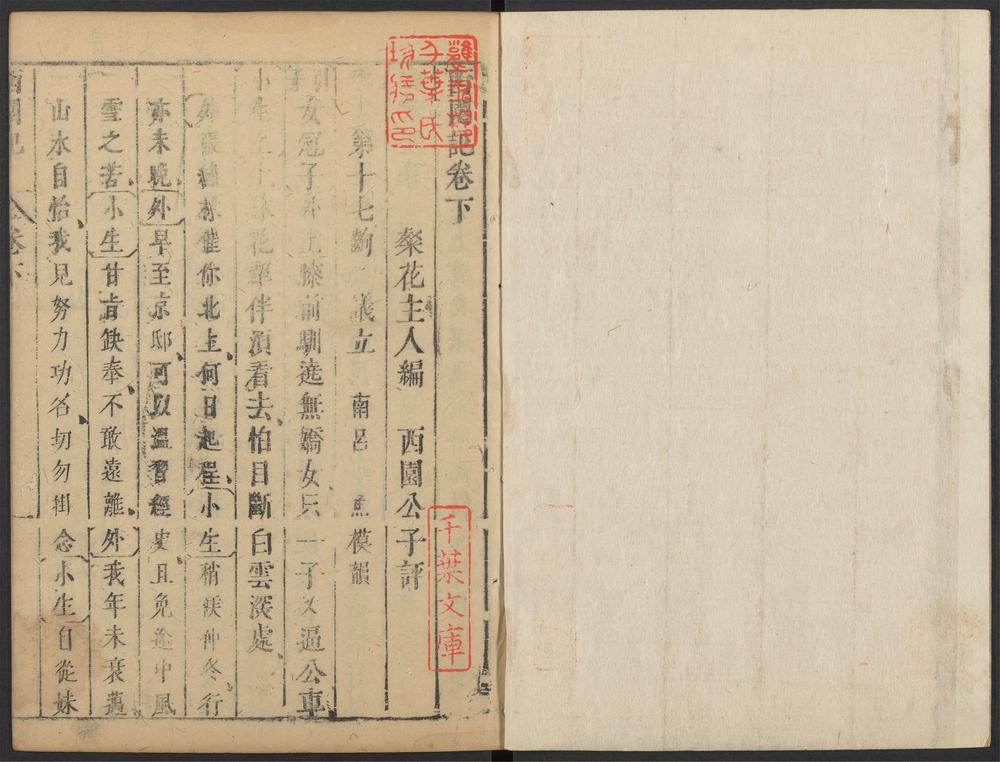 西園記卷下
粲花主人編　西園公子評
第十七齣　議立　南呂　魚模韻
女冠子外上膝前馴遶無嬌女只一子又逼公車
小生上花伴須看去怕目斷白雲深處
外張你北上何日起程小生稍俟仲冬行
亦未晚外早至京邸可以溫習經史且免途中風
雪之苦小生甘旨缺奉不敢遠離外我年未衰邁
山水自怡我兒努力功名切勿掛念小生自從妹
西園記　卷下
千葉文庫